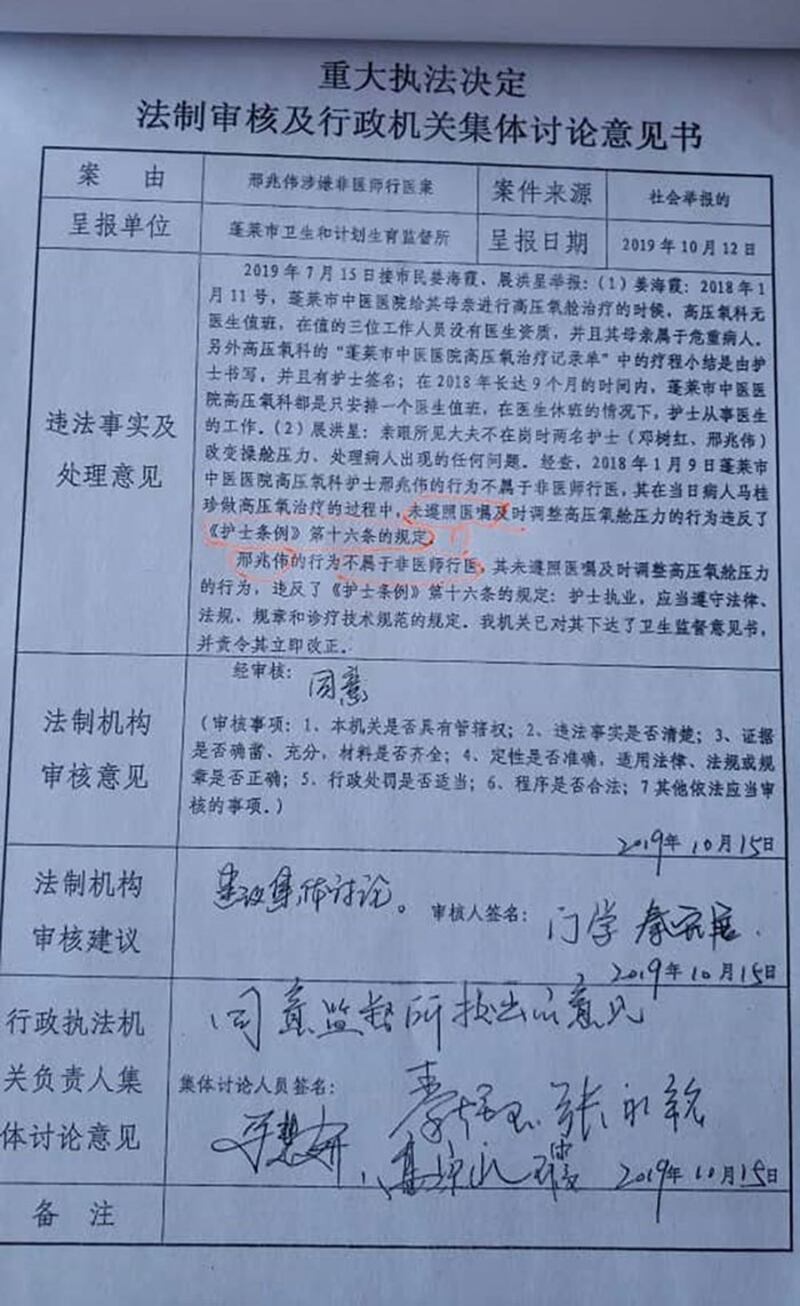 重大执法决定
法制审核及行政机关集体讨论意见书
案 由 邢兆伟涉嫌非医师行医案 案件来源 社会举报的
呈报单位 蓬莱市卫生和计划生育监督所 呈报日期 2019年10月12日
违法事实及
处理意见
2019年7月15日接市民姜海霞、展洪星举报：（1）姜海霞：2018年1
月11号，蓬莱市中医医院给其母亲进行高压氧舱治疗的时候，高压氧科无
医生值班，在值的三位工作人员没有医生资质，并且其母亲属于危重病人。
另外高压氧科的“蓬莱市中医医院高压氧治疗记录单”中的疗程小结是由护
士书写，并且有护士签名；在2018年长达9个月的时间内，蓬莱市中医医
院高压氧科都是只安排一个医生值班，在医生休班的情况下，护士从事医生
的工作。（2）展洪星：亲眼所见大夫不在岗时两名护士（邓树红、邢兆伟）
改变操舱压力、处理病人出现的任何问题。经查，2018年1月9日蓬莱市
中医医院高压氧科护士邢兆伟的行为不属于非医师行医，其在当日病人马桂
珍做高压氧治疗的过程中，未遵照医嘱及时调整高压氧舱压力的行为违反了
《护士条例》第十六条的规定。
邢兆伟的行为不属于非医师行医，其未遵照医嘱及时调整高压氧舱压力
的行为，违反了《护士条例》第十六条的规定：护士执业，应当遵守法律、
法规、规章和诊疗技术规范的规定。我机关已对其下达了卫生监督意见书，
并责令其立即改正。
法制机构
审核意见
经审核： 同意
（审核事项：1、本机关是否具有管辖权；2、违法事实是否清楚；3、证据
是否确凿、充分，材料是否齐全；4、定性是否准确，适用法律、法规或规
章是否正确；5、行政处罚是否适当；6、程序是否合法；7其他依法应当审
核的事项。）
2019年10月15日
法制机构
审核建议
建议集体讨论。 审核人签名： 门学
2019年10月15日
行政执法机
关负责人集
体讨论意见
同意监督所提出的意见
集体讨论人员签名：
2019年10月15日
备 注